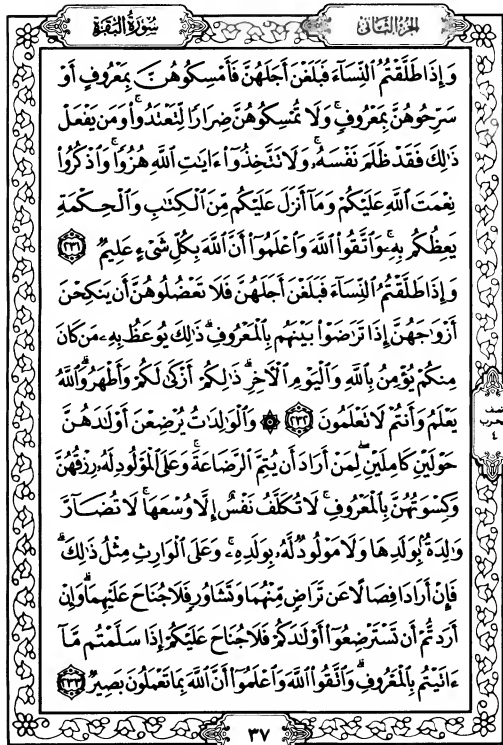 سُورَةُ البَقَرَةِ
الجُزءُ الثَّانِي
وَإِذَا طَلَّقْتُمُ ٱلنِّسَآءَ فَبَلَغْنَ أَجَلَهُنَّ فَأَمْسِكُوهُنَّ بِمَعْرُوفٍ أَوْ
سَرِّحُوهُنَّ بِمَعْرُوفٍ ۚ وَلَا تُمْسِكُوهُنَّ ضِرَارًا لِّتَعْتَدُوا۟ ۚ وَمَن يَفْعَلْ
ذَٰلِكَ فَقَدْ ظَلَمَ نَفْسَهُۥ ۚ وَلَا تَتَّخِذُوٓا۟ ءَايَٰتِ ٱللَّهِ هُزُوًا ۚ وَٱذْكُرُوا۟
نِعْمَتَ ٱللَّهِ عَلَيْكُمْ وَمَآ أَنزَلَ عَلَيْكُم مِّنَ ٱلْكِتَٰبِ وَٱلْحِكْمَةِ
يَعِظُكُم بِهِۦ ۚ وَٱتَّقُوا۟ ٱللَّهَ وَٱعْلَمُوٓا۟ أَنَّ ٱللَّهَ بِكُلِّ شَىْءٍ عَلِيمٌ ٢٣١
وَإِذَا طَلَّقْتُمُ ٱلنِّسَآءَ فَبَلَغْنَ أَجَلَهُنَّ فَلَا تَعْضُلُوهُنَّ أَن يَنكِحْنَ
أَزْوَٰجَهُنَّ إِذَا تَرَٰضَوْا۟ بَيْنَهُم بِٱلْمَعْرُوفِ ۗ ذَٰلِكَ يُوعَظُ بِهِۦ مَن كَانَ
مِنكُمْ يُؤْمِنُ بِٱللَّهِ وَٱلْيَوْمِ ٱلْءَاخِرِ ۗ ذَٰلِكُمْ أَزْكَىٰ لَكُمْ وَأَطْهَرُ ۗ وَٱللَّهُ
يَعْلَمُ وَأَنتُمْ لَا تَعْلَمُونَ ٢٣٢ ۞ وَٱلْوَٰلِدَٰتُ يُرْضِعْنَ أَوْلَٰدَهُنَّ
حَوْلَيْنِ كَامِلَيْنِ ۖ لِمَنْ أَرَادَ أَن يُتِمَّ ٱلرَّضَاعَةَ ۚ وَعَلَى ٱلْمَوْلُودِ لَهُۥ رِزْقُهُنَّ
وَكِسْوَتُهُنَّ بِٱلْمَعْرُوفِ ۚ لَا تُكَلَّفُ نَفْسٌ إِلَّا وُسْعَهَا ۚ لَا تُضَآرَّ
وَٰلِدَةٌۢ بِوَلَدِهَا وَلَا مَوْلُودٌ لَّهُۥ بِوَلَدِهِۦ ۚ وَعَلَى ٱلْوَارِثِ مِثْلُ ذَٰلِكَ ۗ
فَإِنْ أَرَادَا فِصَالًا عَن تَرَاضٍ مِّنْهُمَا وَتَشَاوُرٍ فَلَا جُنَاحَ عَلَيْهِمَا ۗ وَإِنْ
أَرَدتُّمْ أَن تَسْتَرْضِعُوٓا۟ أَوْلَٰدَكُمْ فَلَا جُنَاحَ عَلَيْكُمْ إِذَا سَلَّمْتُم مَّآ
ءَاتَيْتُم بِٱلْمَعْرُوفِ ۗ وَٱتَّقُوا۟ ٱللَّهَ وَٱعْلَمُوٓا۟ أَنَّ ٱللَّهَ بِمَا تَعْمَلُونَ بَصِيرٌ ٢٣٣
نصف
الحزب
٤
٣٧